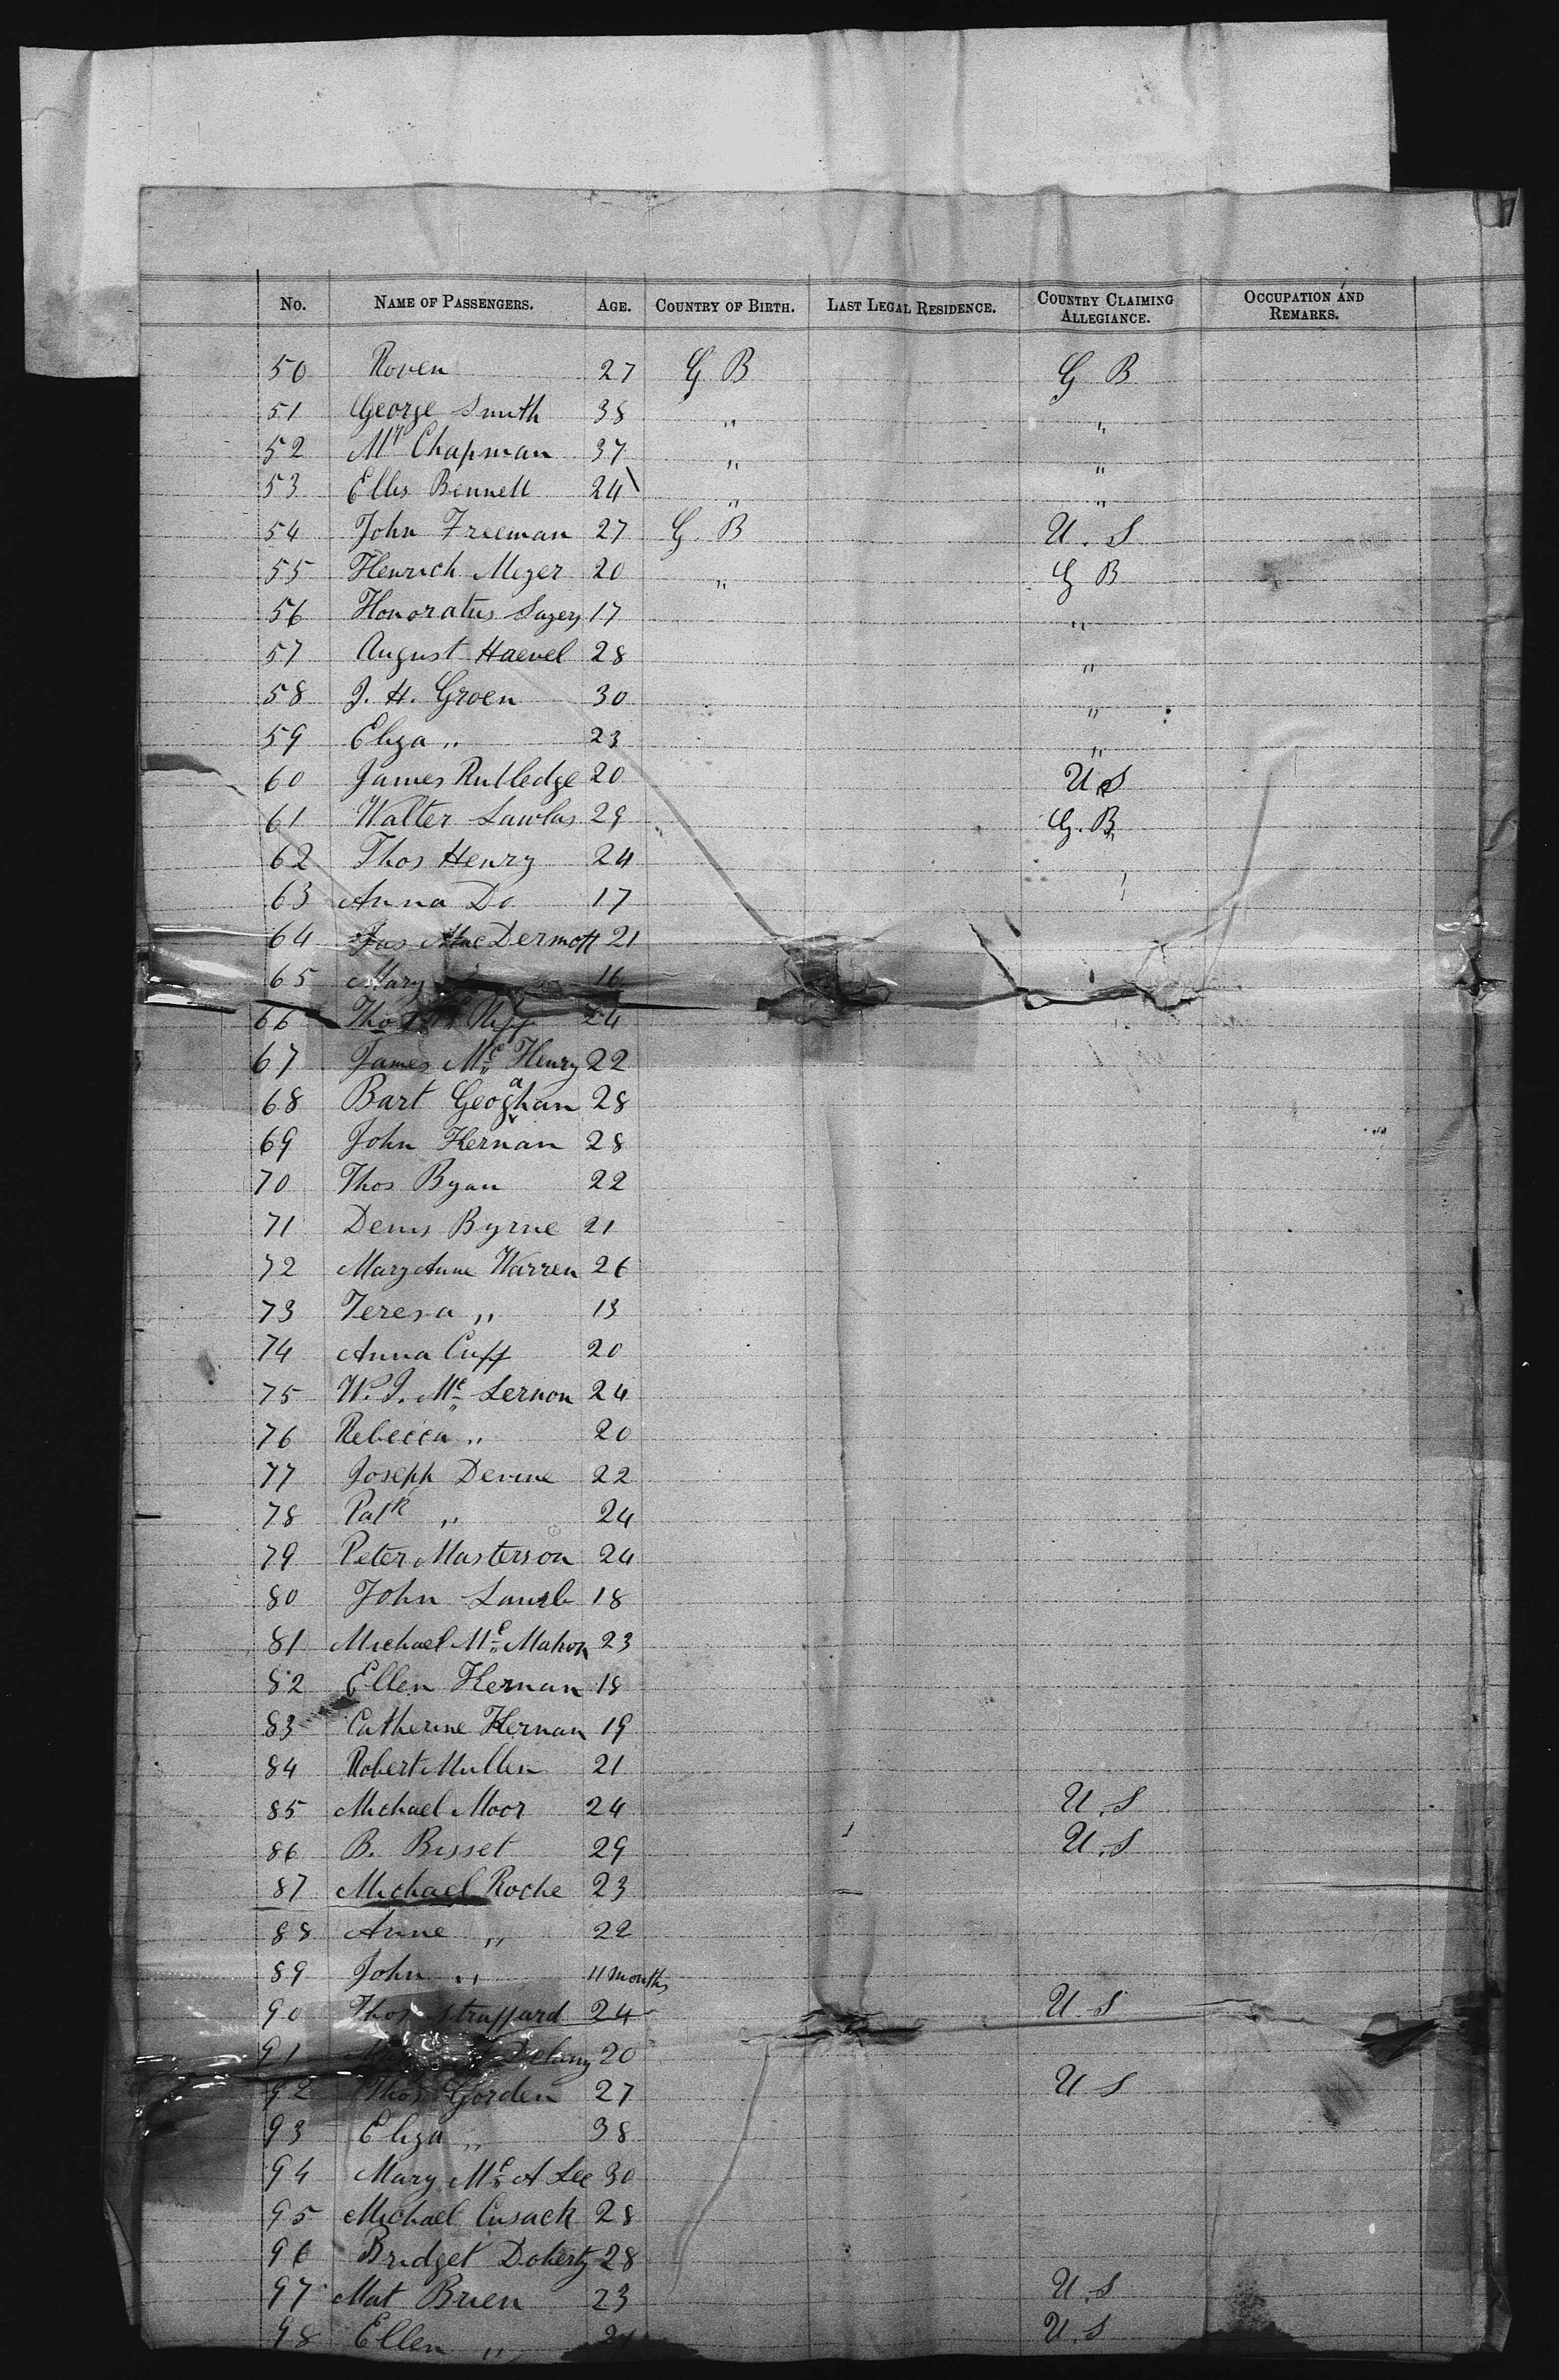 No. NAME OF PASSENGERS. AGE. COUNTRY OF BIRTH. LAST LEGAL RESIDENCE. COUNTRY CLAIMING ALLEGIANCE. OCCUPATION AND REMARKS.
50 Roven 27 G B G B
51 George Smith 38 " "
52 Mr Chapman 37 " "
53 Ellis Bennett 24 " "
54 John Freeman 27 G. B U. S
55 Henrich Meyer 20 " G B
56 Honoratus 17 "
57 August Haevel 28 "
58 J. H. Groen 30 "
59 Eliza " 23 "
60 James Rutledge 20 U S
61 Walter Lawlas 29 G. B
62 Thos Henry 24
63 Anna Do 17
64 Jas Mac Dermott 21
65 Mary 16
66 24
67 James Mc Henry 22
68 Bart Geoghan 28
69 John Kernan 28
70 Thos Byan 22
71 Denis Byrne 21
72 Mary Anne Warren 26
73 Teresa " 13
74 Anna Cuff 20
75 W. J. Mc Lernon 24
76 Rebecca " 20
77 Joseph Devine 22
78 Patk " 24
79 Peter Masterson 24
80 John Lamb 18
81 Michael Mc Mahon 23
82 Ellen Kernan 18
83 Catherine Kernan 19
84 Robert Mullen 21
85 Michael Moor 24 U. S
86 B. Bisset 29 U. S
87 Michael Roche 23
88 Anne " 22
89 John " 11 months
90 Thos Straffard 24 U. S
91 Delany 20
92 Thos Gorden 27 U S
93 Eliza " 38
94 Mary Mc A Lee 30
95 Michael Cusack 28
96 Bridget Doherty 28
97 Mat Brien 23 U. S
98 Ellen " U. S